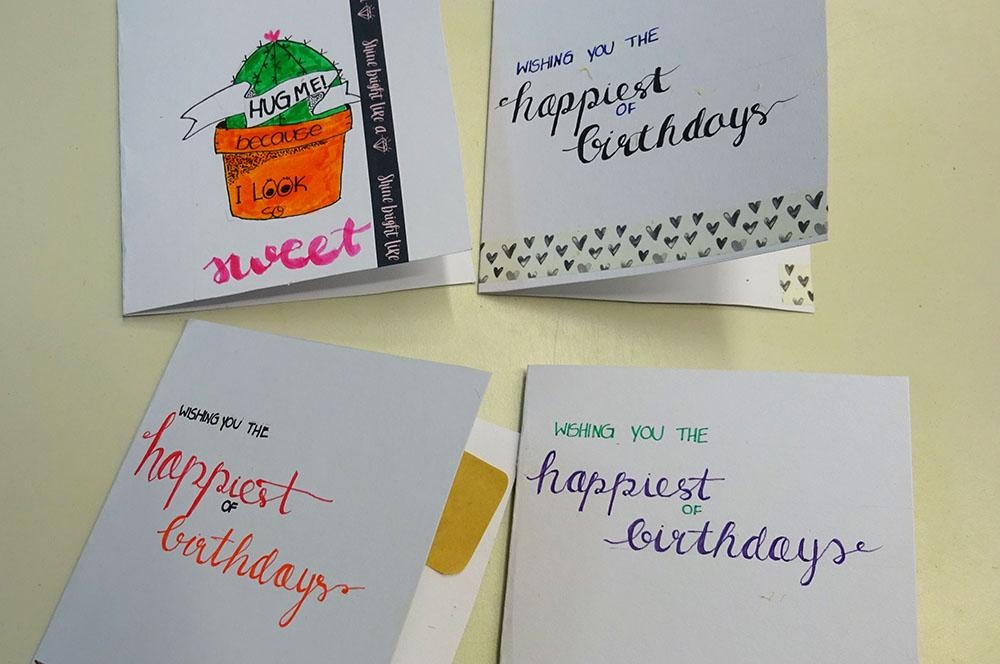 HUG ME!
because
I LOOK
SO
sweet
Shine bright like a
Shine bright like
WISHING YOU THE
happiest
OF
birthdays
WISHING YOU THE
happiest
OF
birthdays
WISHING YOU THE
happiest
OF
birthdays